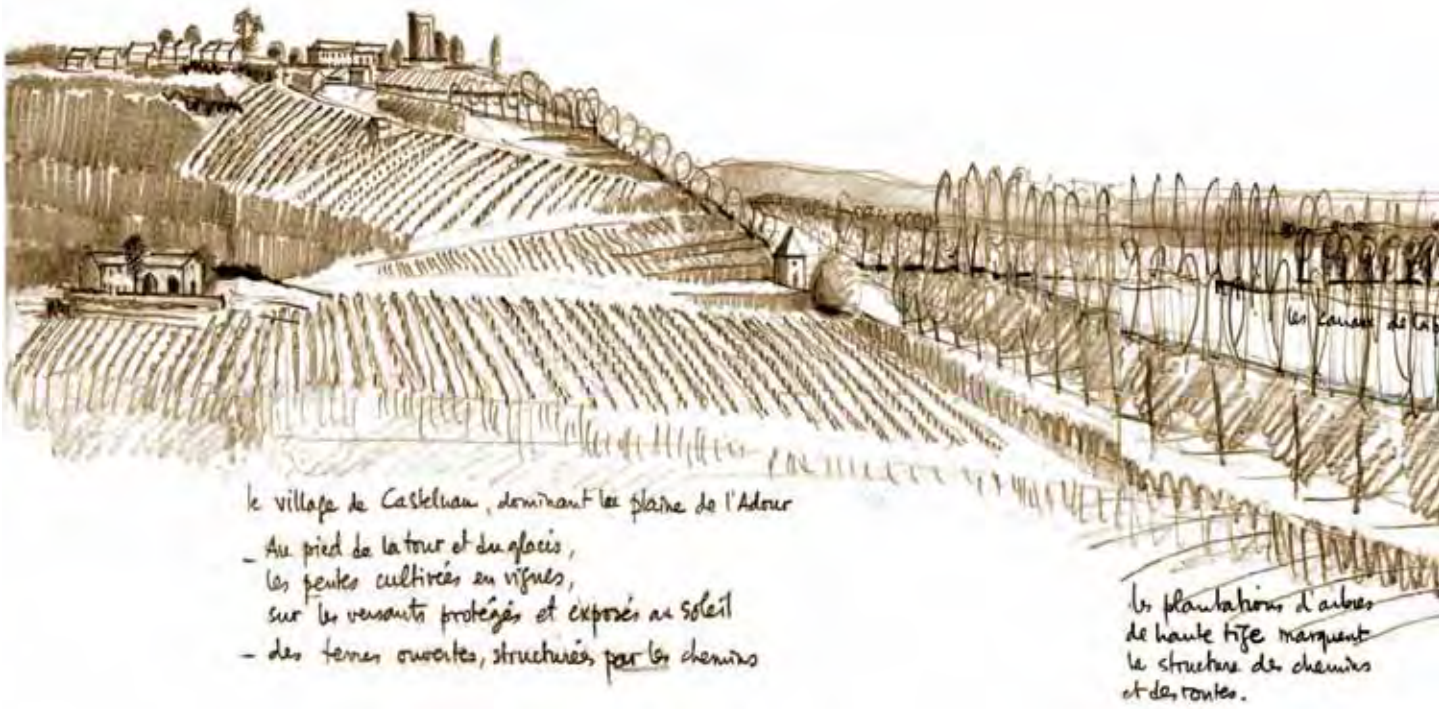 le village de Castelnau, dominant la plaine de l'Adour
- Au pied de la tour et du glacis,
les pentes cultivées en vignes,
sur les versants protégés et exposés au soleil
- des terres ouvertes, structurées par les chemins
les canaux de la
les plantations d'arbres
de haute tige marquent
la structure des chemins
et des routes.